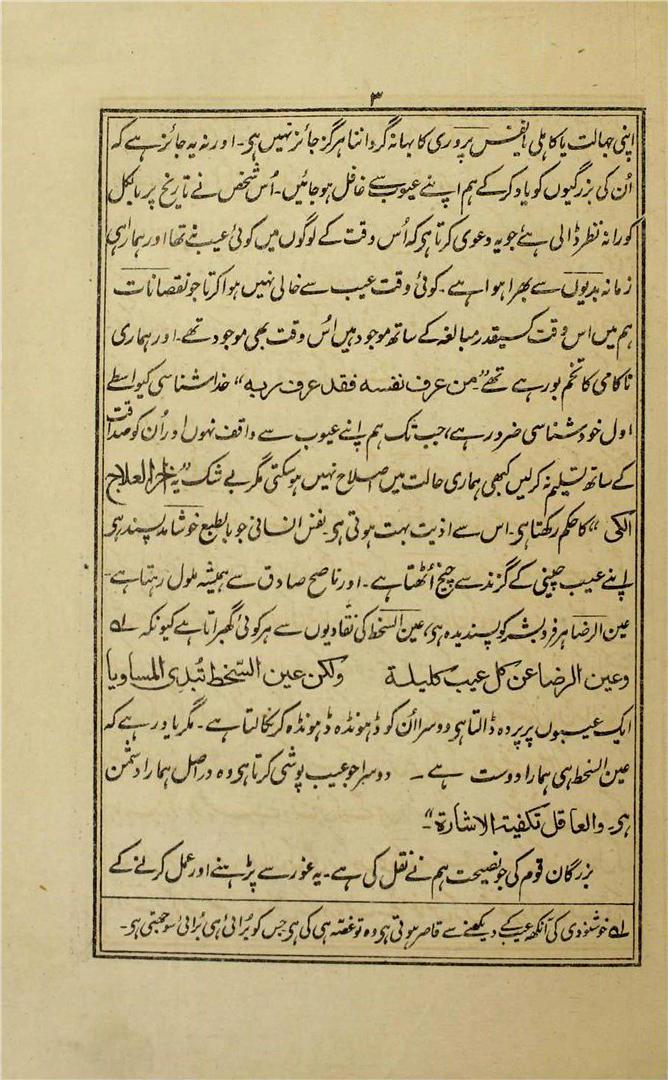 ۳
اپنی جہالت یا کاہلی یا نفس پروری کا بہانہ گرداننا ہرگز جائز نہیں ہی۔ اور نہ یہ جائز ہے کہ
اُن کی بزرگیوں کو یاد کر کے ہم اپنے عیوب سے غافل ہو جائیں۔ اُس شخص نے تاریخ پر بالکل
کورانہ نظر ڈالی ہے جو یہ دعوی کرتا ہی کہ اُس وقت کے لوگوں میں کوئی عیب نہ تھا اور ہمارا ہی
زمانہ بدیوں سے بھرا ہوا ہے۔ کوئی وقت عیب سے خالی نہیں ہوا کرتا جو نقصانات
ہم میں اس وقت کسیقدر مبالغہ کے ساتھ موجود ہیں اُس وقت بھی موجود تھے۔ اور ہماری
ناکامی کا تخم بو رہے تھے "من عرف نفسه فقد عرف ربه" خدا شناسی کیواسطے
اول خود شناسی ضرور ہے، جب تک ہم اپنے عیوب سے واقف نہوں اور اُن کو صداقت
کے ساتھ تسلیم نہ کر لیں کبھی ہماری حالت میں اصلاح نہیں ہو سکتی مگر بے شک یہ "اٰخر العلاج
الکی" کا حکم رکھتا ہی۔ اس سے اذیت بہت ہوتی ہی۔ نفس انسانی جو بالطبع خوشامد پسند ہی
اپنے عیب چینی کے گزند سے چیخ اُٹھتا ہے۔ اور ناصح صادق سے ہمیشہ ملول رہتا ہے۔
عین الرضا ہر فرد بشر کو پسندیدہ ہی، عین السخط کی نقادیوں سے ہر کوئی گھبراتا ہے کیونکہ ؎۱
وعين الرضا عن كل عيب كليلة ولكن عين السخط تُبدى المساويا
ایک عیبوں پر پردہ ڈالتا ہی دوسرا اُن کو ڈھونڈہ ڈھونڈہ کر نکالتا ہے۔ مگر یاد رہے کہ
عین السخط ہی ہمارا دوست ہے۔ دوسرا جو عیب پوشی کرتا ہی وہ در اصل ہمارا دشمن
ہی۔ والعاقل تکفیتہ الاشارة"۔
بزرگان قوم کی جو نصیحت ہم نے نقل کی ہے۔ یہ غور سے پڑہنے اور عمل کرنے کے
؎۱ خوشنودی کی آنکھ عیب کے دیکھنے سے قاصر ہوتی ہی وہ تو غصّہ ہی کی ہی جس کو بُرائی ہی بُرائی سوجھتی ہی۔